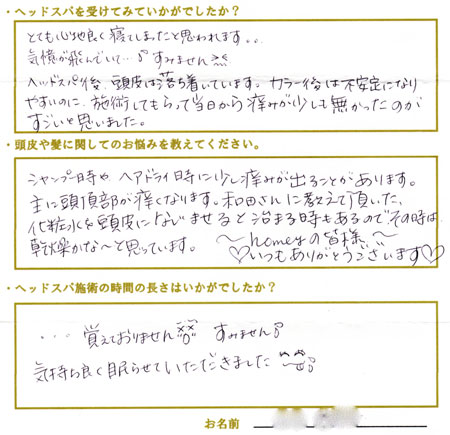 ・ヘッドスパを受けてみていかがでしたか？
とても心地良く寝てしまったと思われます。。
気憶が飛んでいて…♪ すみません
ヘッドスパ後、頭皮は落ち着いています。カラー後は不安定になり
やすいのに、施術してもらって当日から痒みが少しも無かったのが
すごいと思いました。
・頭皮や髪に関してのお悩みを教えてください。
シャンプー時や ヘアドライ時に少し痒みが出ることがあります。
主に頭頂部が痒くなります。和田さんに教えて頂いた、
化粧水を頭皮になじませると治まる時もあるのでその時は
乾燥かな〜と思っています。
〜homeyの皆様〜
♡いつもありがとうございます♡
・ヘッドスパ施術の時間の長さはいかがでしたか？
・・・覚えておりません すみません♪
気持ち良く眠らせていただきました
お名前